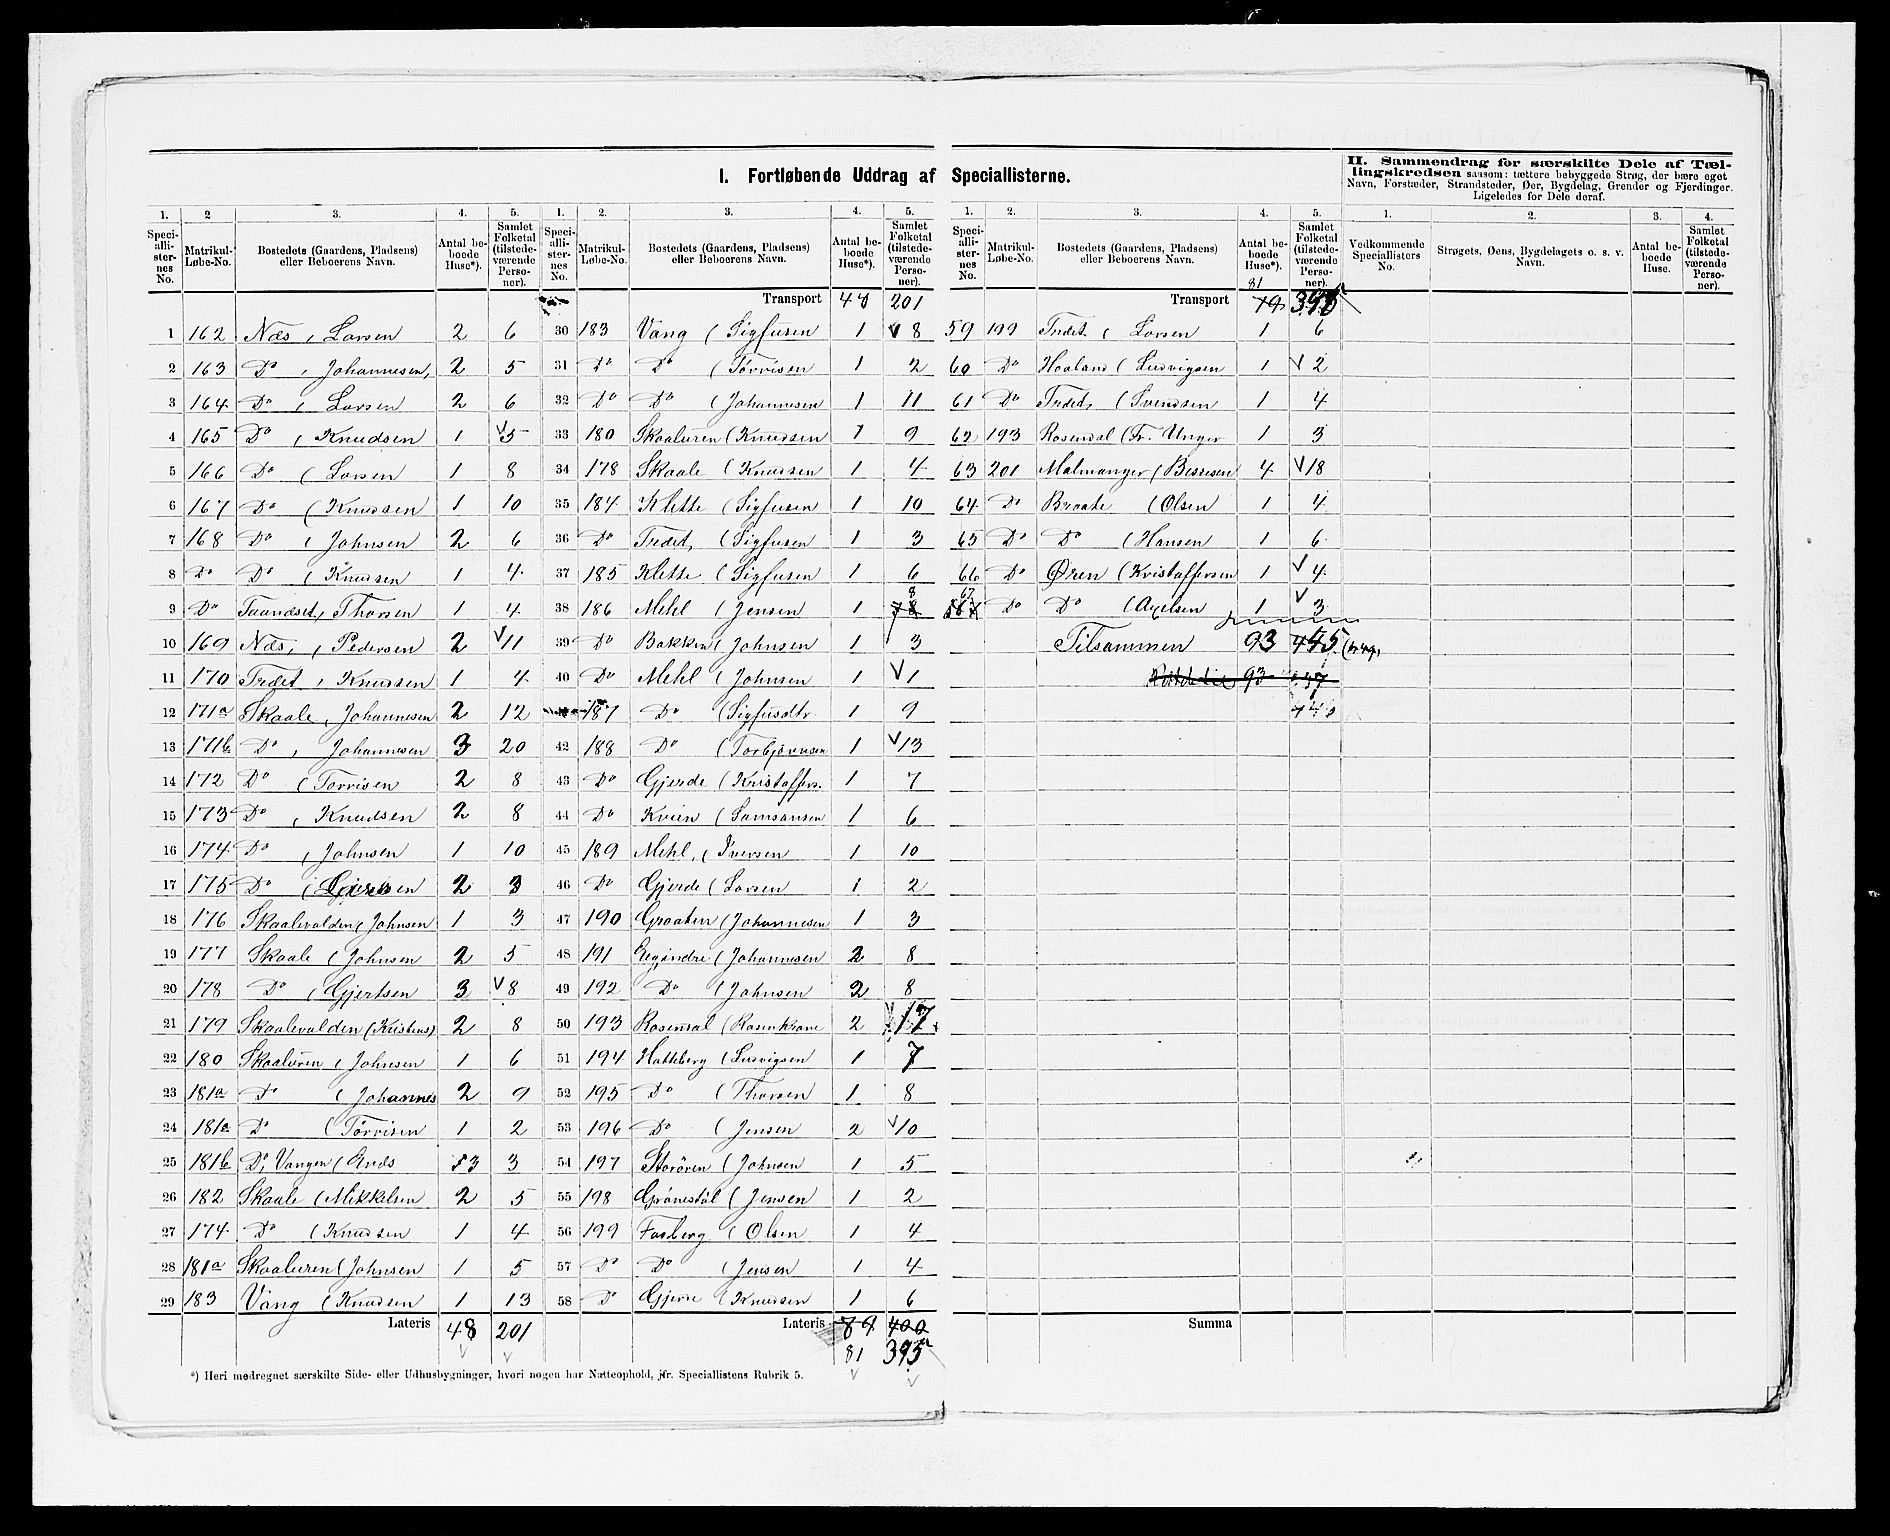 I. Fortløbende Uddrag af Speciallisterne.
1. 2 3. 4. 5.
Speciallisternes No. Matrikul-Løbe-No. Bostedets (Gaardens, Pladsens) eller Beboerens Navn. Antal beboede Huse*). Samlet Folketal (tilstedeværende Personer).
1 162 Næs, Larsen 2 6
2 163 Do, Johannesen, 2 5
3 164 Do, Larsen 2 6
4 165 Do, Knudsen 1 5
5 166 Do (Larsen 1 8
6 167 Do (Knudsen 1 10
7 168 Do (Johnsen 2 6
8 Do Do (Knudsen 1 4
9 Do Taandset, Thorsen 1 4
10 169 Næs, (Pedersen 2 11
11 170 Trædet, Knudsen 1 4
12 171a Skaale, Johannesen 2 12
13 171b Do, Johannesen 3 20
14 172 Do (Torrisen 2 8
15 173 Do, Knudsen 2 8
16 174 Do, Johnsen 1 10
17 175 Do 2 3
18 176 Skaalevolden (Johnsen 1 3
19 177 Skaale (Johnsen 2 5
20 178 Do (Gjertsen 3 8
21 179 Skaalevolden (Kristens) 2 8
22 180 Skaaluren (Johnsen 1 6
23 181a Do (Johannes 2 9
24 181a Do (Torrisen 1 2
25 181b Do, Vangen (Ands 3 3
26 182 Skaale (Mikkelsen 2 5
27 174 Do (Knudsen 1 4
28 181a Skaaluren (Johnsen 1 5
29 183 Vang (Knudsen 1 13
Lateris 48 201
1. 2. 3. 4. 5.
Speciallisternes No. Matrikul-Løbe-No. Bostedets (Gaardens, Pladsens) eller Beboerens Navn. Antal beboede Huse*). Samlet Folketal (tilstedeværende Personer).
Transport 48 201
30 183 Vang (Sigfusen 1 8
31 Do Do (Torrisen 1 2
32 Do Do (Johannesen 1 11
33 180 Skaaluren (Knudsen 1 9
34 178 Skaale (Knudsen 1 4
35 184 Klette (Sigfusen 1 10
36 Do Trædet, (Sigfusen 1 3
37 185 Klette (Sigfusen 1 6
38 186 Mehl (Jensen 1 8
39 Do Bakken (Johnsen 1 3
40 Do Mehl (Johnsen 1 1
187 Do (Sigfusdtr 1 9
42 188 Do (Torbjørnsen 1 13
43 Do Gjerde (Kristoffers. 1 7
44 Do Kvien (Samsonsen 1 6
45 189 Mehl, (Iversen 1 10
46 Do Gjerde (Larsen 1 2
47 190 Graaten (Johannesen 1 3
48 191 (Johannesen 2 8
49 192 Do (Johnsen 2 8
50 193 Rosendal (Rosenkrone 2 17
51 194 Hatteberg (Ludvigsen 1 7
52 195 Do (Thorsen 1 8
53 196 Do (Jensen 2 10
54 197 Storören (Johnsen 1 5
55 198 Grönestöl (Jensen 1 2
56 199 Fasberg (Olsen 1 4
57 Do Do (Jensen 1 4
58 Do Gjerde (Knudsen 1 6
Lateris 79 400
81 395
*) Heri medregnet særskilte Side- eller Udhusbygninger, hvori nogen har Natteophold, jfr. Speciallistens Rubrik 5.
1. 2. 3. 4. 5.
Speciallisternes No. Matrikul-Løbe-No. Bostedets (Gaardens, Pladsens) eller Beboerens Navn. Antal beboede Huse*). Samlet Folketal (tilstedeværende Personer).
81
Transport 79 395
59 199 Trædet (Larsen 1 6
60 Do Haaland (Ludvigsen 1 2
61 Do Trædet, (Svendsen 1 4
62 193 Rosendal (Fr. Unger 1 3
63 201 Malmanger (Bessesen 4 18
64 Do Braate (Olsen 1 4
65 Do Do (Hansen 1 6
66 Do Øren (Kristoffersen 1 4
67 Do Do (Axelsen 1 3
Tilsammen 93 445
93
Summa
II. Sammendrag for særskilte Dele af Tællingskredsen saasom: tættere bebyggede Strøg, der bære eget Navn, Forstæder, Strandsteder, Øer, Bygdelag, Grender og Fjerdinger. Ligeledes for Dele deraf.
1. 2. 3. 4.
Vedkommende Speciallisters No. Strøgets, Øens, Bygdelagets o. s. v. Navn. Antal beboede Huse. Samlet Folketal (tilstedeværende Personer).